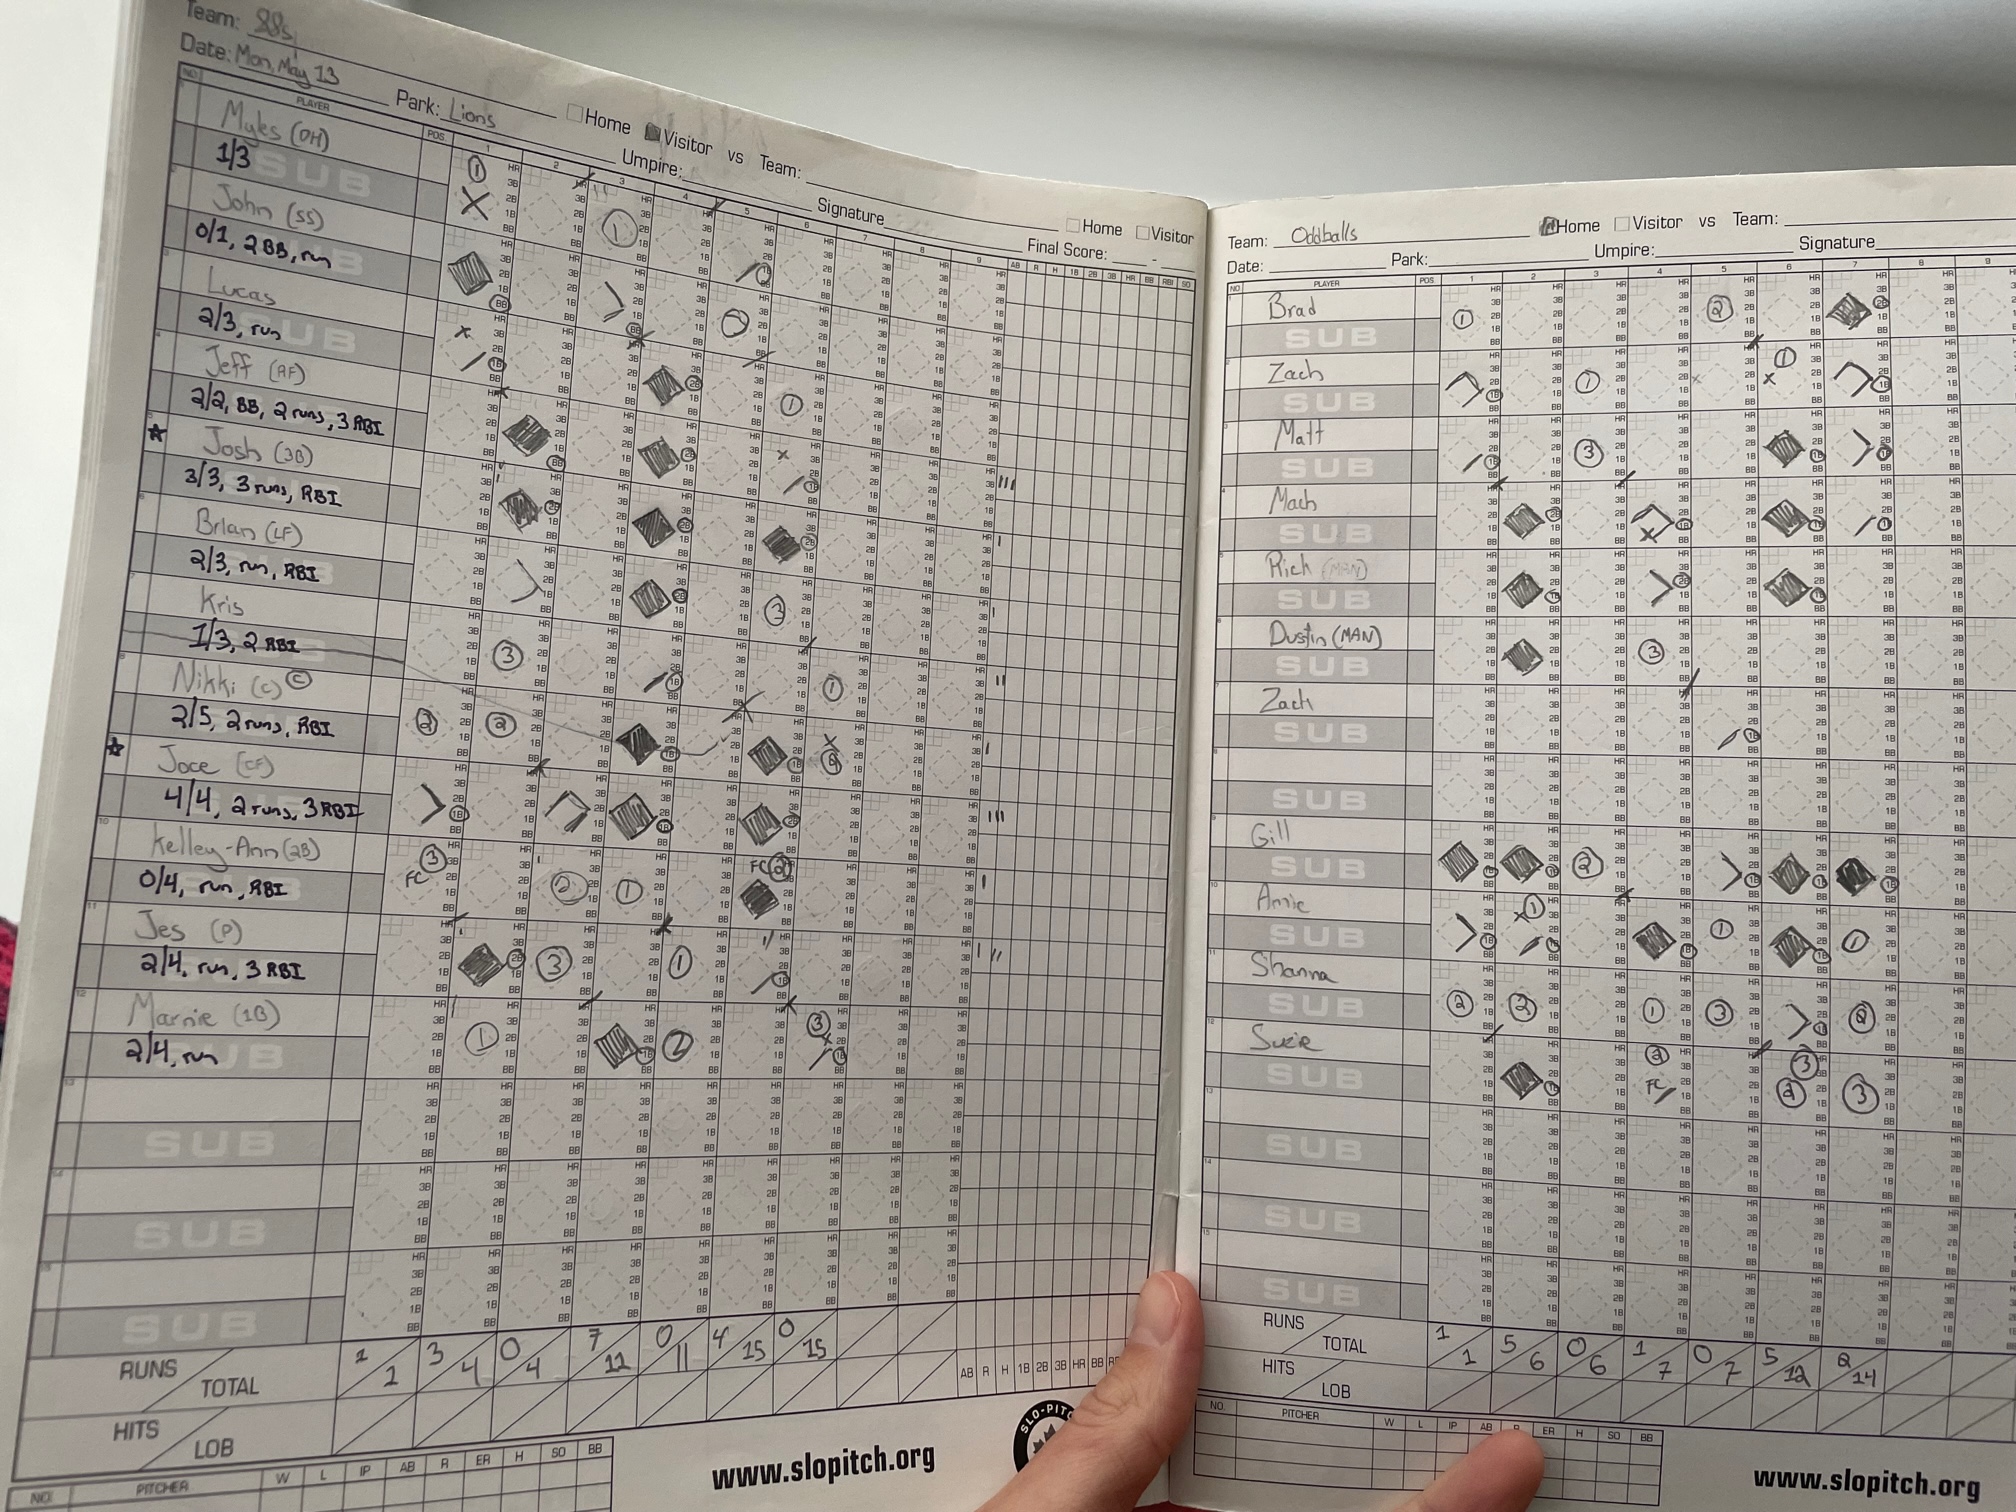 Team: 88s
Date: Mon, May 13 Park: Lions Home Visitor vs Team:
Umpire: Signature Home Visitor
Final Score: -
NO. PLAYER POS. 1 2 3 4 5 6 7 8 9 AB R H 1B 2B 3B HR BB RBI SO
Myles (DH)
1/3 SUB
John (SS)
0/1, 2 BB, run
Lucas
2/3, run SUB
Jeff (RF)
2/2, BB, 2 runs, 3 RBI
Josh (3B)
3/3, 3 runs, RBI
Brian (LF)
2/3, run, RBI
Kris
1/3, 2 RBI
Nikki (C) ©
2/5, 2 runs, RBI
Joce (CF)
4/4, 2 runs, 3 RBI
Kelley-Ann (2B)
0/4, run, RBI
FC
FC
Jes (P)
2/4, run, 3 RBI
Marnie (1B)
2/4, run SUB
SUB
SUB
SUB
RUNS 3 0 7 0 4 0
TOTAL 4 4 11 15 15
HITS
LOB
AB R H 1B 2B 3B HR BB
NO. PITCHER W L IP AB R ER H SO BB
www.slopitch.org
SLO-PITC
Team: Oddballs Home Visitor vs Team:
Date: Park: Umpire: Signature
NO. PLAYER POS. 1 2 3 4 5 6 7 8 9
Brad
SUB
Zach
SUB
Matt
SUB
Mach
SUB
Rich (MAN)
SUB
Dustin (MAN)
SUB
Zach
SUB
SUB
Gill
SUB
Annie
SUB
Shanna
SUB
Suzie
SUB
FC
SUB
SUB
SUB
RUNS 1 5 0 1 0 5 2
TOTAL 1 6 6 7 7 12 14
HITS
LOB
NO. PITCHER W L IP AB R ER H SO BB
www.slopitch.org